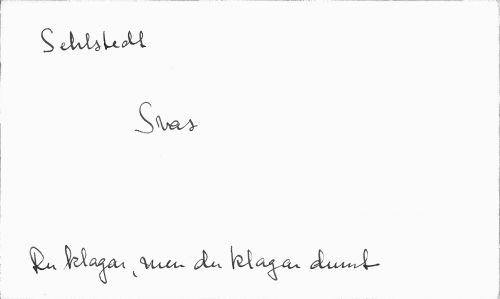 Sehlstedt
Svar
Du klagar, men du klagar dumt